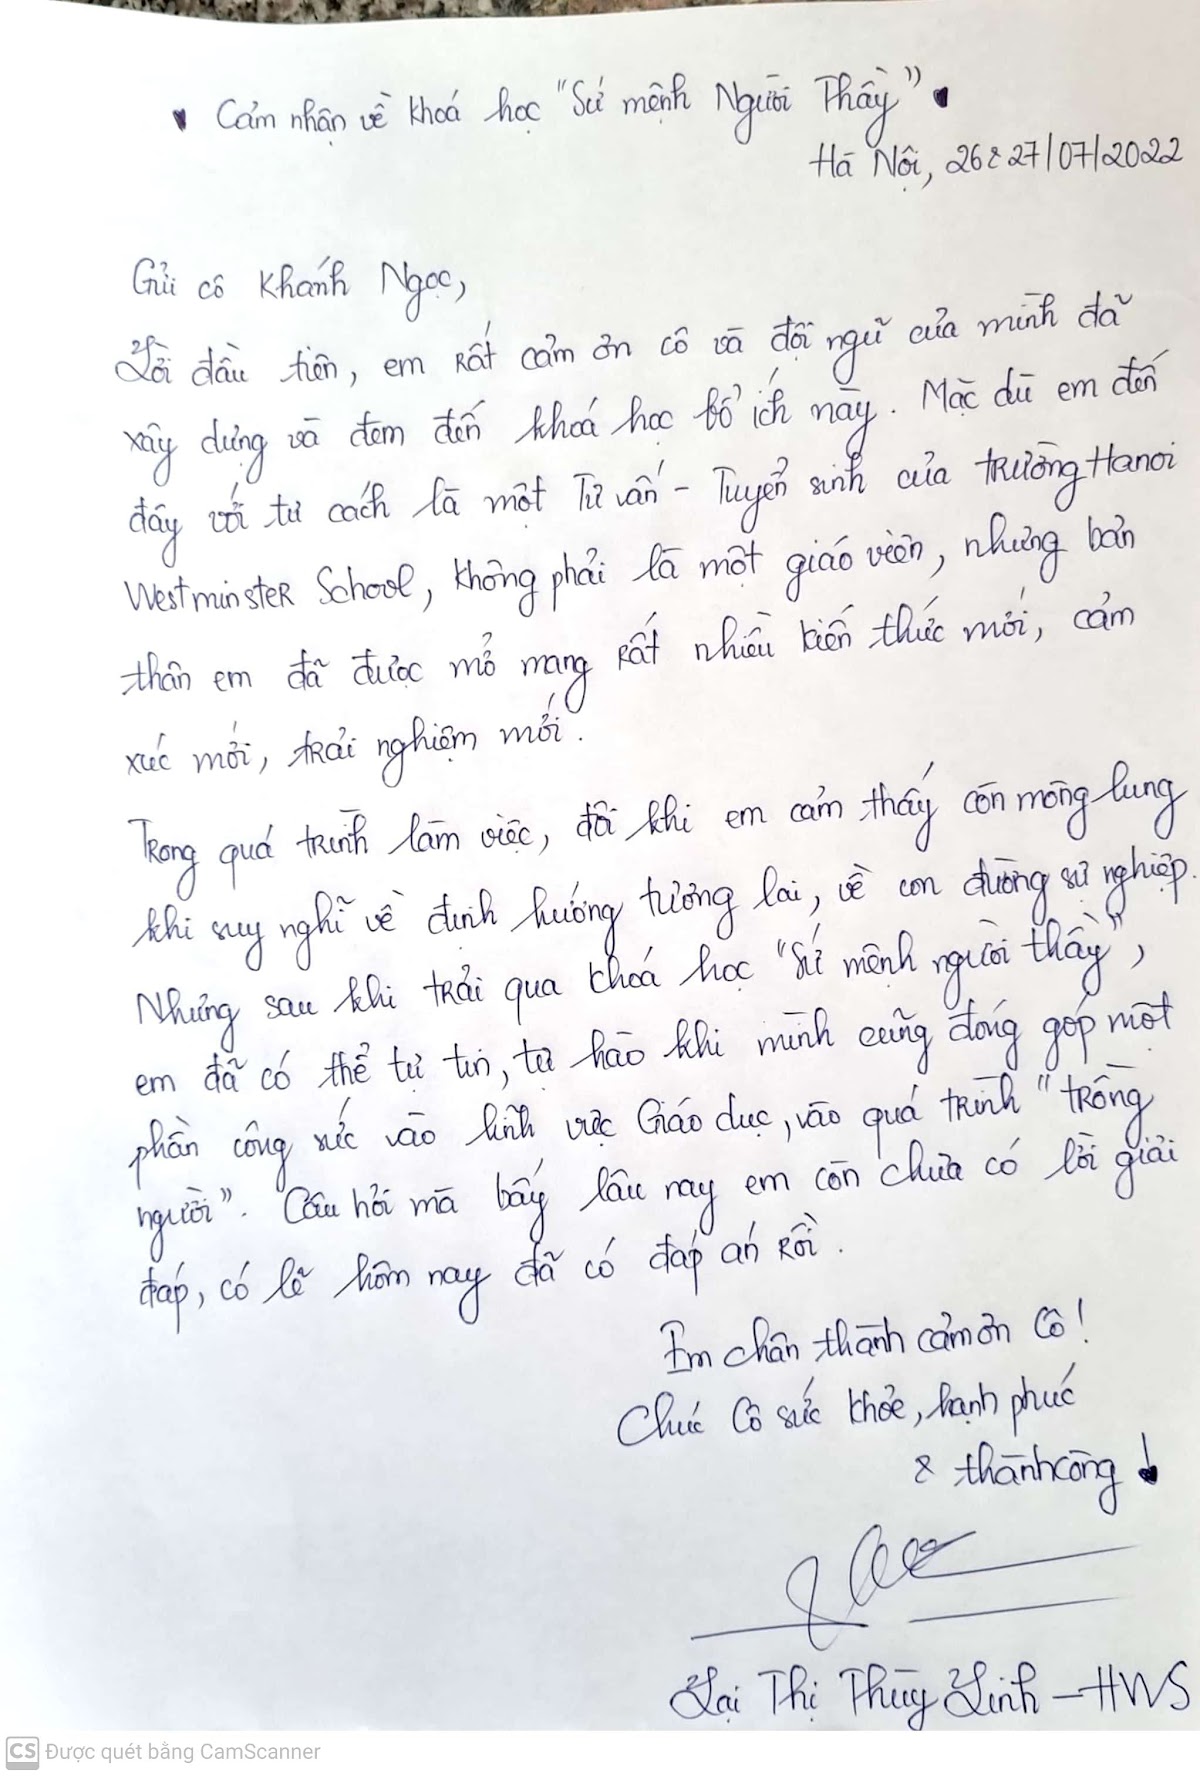 Cảm nhận về khoá học "Sứ mệnh Người Thầy"
Hà Nội, 26&27/07/2022
Gửi cô Khánh Ngọc,
Lời đầu tiên, em rất cảm ơn cô và đội ngũ của mình đã
xây dựng và đem đến khoá học bổ ích này. Mặc dù em đến
đây với tư cách là một Tư vấn - Tuyển sinh của trường Hanoi
Westminster School, không phải là một giáo viên, nhưng bản
thân em đã được mở mang rất nhiều kiến thức mới, cảm
xúc mới, trải nghiệm mới.
Trong quá trình làm việc, đôi khi em cảm thấy còn mông lung
khi suy nghĩ về định hướng tương lai, về con đường sự nghiệp.
Nhưng sau khi trải qua khoá học "Sứ mệnh người thầy",
em đã có thể tự tin, tự hào khi mình cũng đóng góp một
phần công sức vào lĩnh vực Giáo dục, vào quá trình "trồng
người". Câu hỏi mà bấy lâu nay em còn chưa có lời giải
đáp, có lẽ hôm nay đã có đáp án rồi.
Em chân thành cảm ơn Cô!
Chúc Cô sức khỏe, hạnh phúc
& thành công
Lại Thị Thùy Linh - HWS
CS Được quét bằng CamScanner